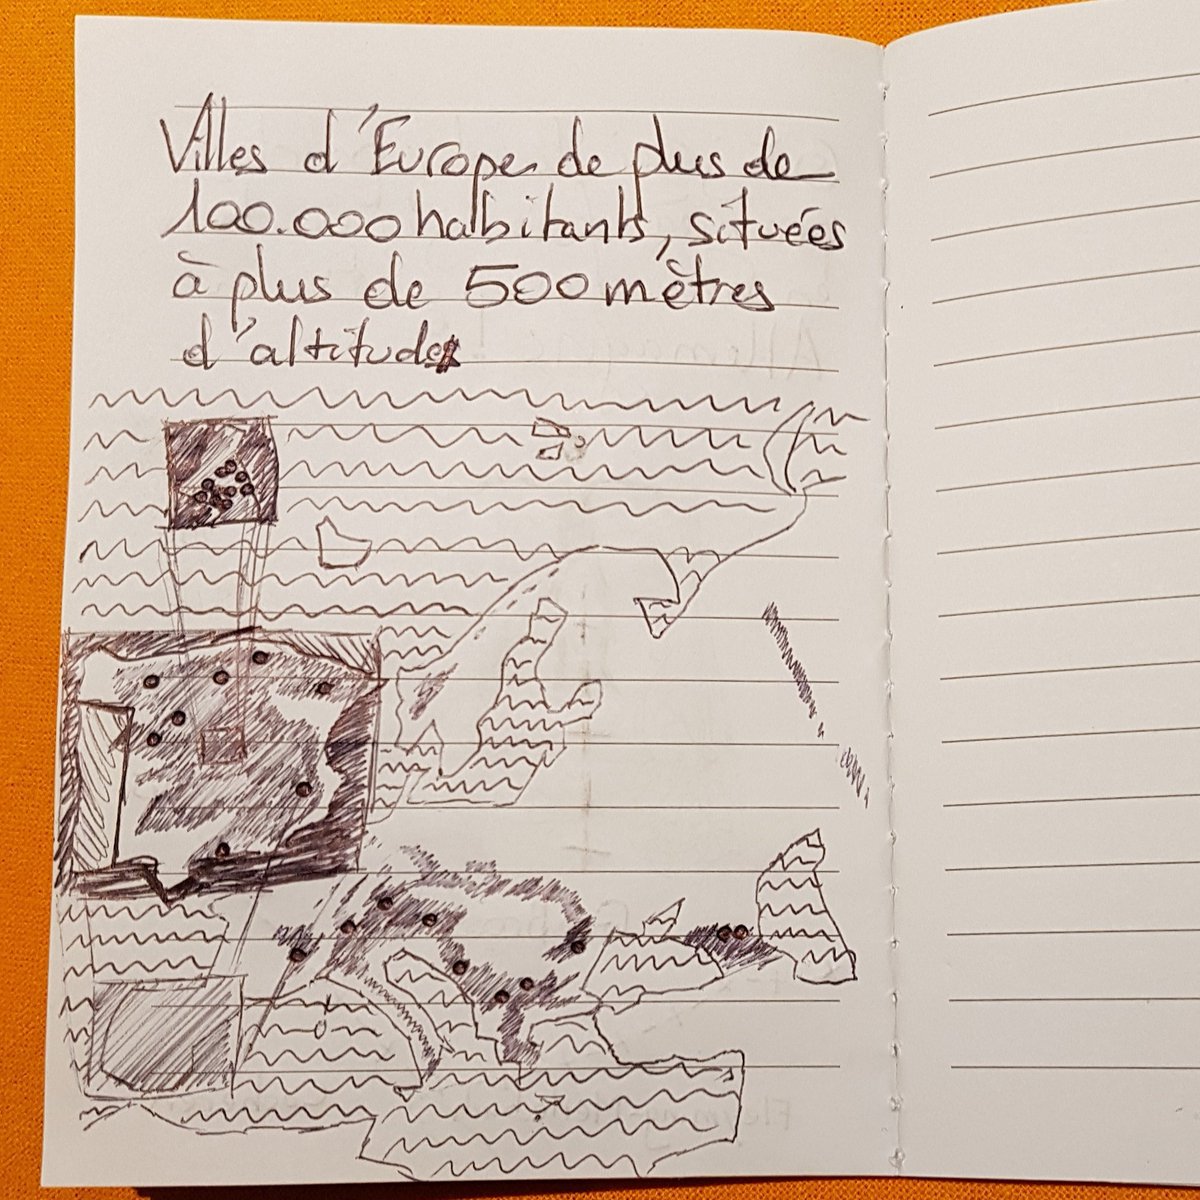 Villes d'Europe de plus de
100.000 habitants, situées
à plus de 500 mètres
d'altitude